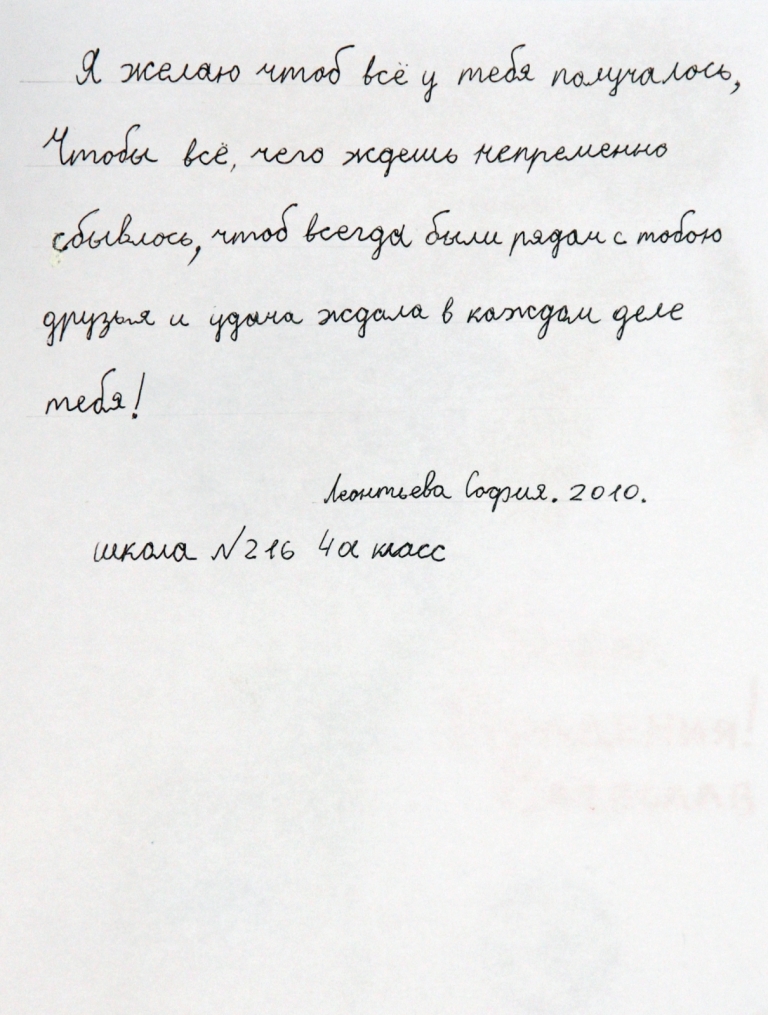 Я желаю чтоб всё у тебя получалось,
Чтобы всё, чего ждешь непременно
сбывлось, чтоб всегда были рядом с тобою
друзья и удача ждала в каждом деле
тебя!
Леонтьева София. 2010.
школа №216 4а класс